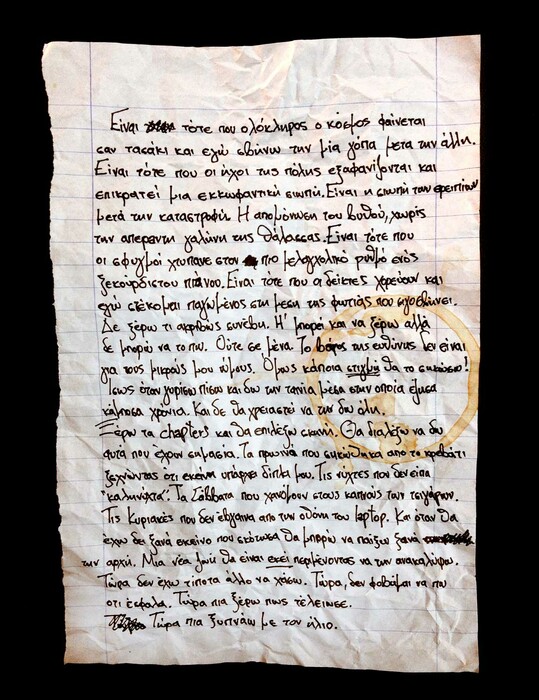 Είναι τότε που ολόκληρος ο κόσμος φαίνεται
σαν τασάκι και εγώ σβήνω την μία γόπα μετά την άλλη.
Είναι τότε που οι ήχοι της πόλης εξαφανίζονται και
επικρατεί μια εκκωφαντική σιωπή. Είναι η σιωπή των ερειπίων
μετά την καταστροφή. Η απομόνωση του βυθού, χωρίς
την απέραντη γαλήνη της θάλασσας. Είναι τότε που
οι σφυγμοί χτυπάνε στον πιο μελαγχολικό ρυθμό ενός
ξεκουρδιστου πιάνου. Είναι τότε που οι δείκτες χορεύουν και
εγώ στέκομαι παγωμένος στη μέση της φωτιάς που σιγοσβήνει.
Δε ξέρω τι ακριβώς συνέβη. Ή μπορεί και να ξέρω αλλά
δε μπορώ να το πω. Ούτε σε μένα. Το βάρος της ευθύνης δεν είναι
για τους μικρούς μου ώμους. Όμως κάποια στιγμή θα το σηκώσω!
Ίσως όταν γυρίσω πίσω και δω την ταινία μέσα στην οποία έζησα
κάμποσα χρόνια. Και δε θα χρειαστεί να την δω όλη.
Ξέρω τα chapters και θα επιλέξω σκηνή. Θα διαλέξω να δω
αυτά που έχουν σημασία. Τα πρωινά που σηκώθηκα από το κρεβάτι
ξεχνώντας ότι εκείνη υπάρχει δίπλα μου. Τις νύχτες που δεν είπα
"καληνύχτα". Τα Σάββατα που χανόμουν στους καπνούς των τσιγάρων.
Τις Κυριακές που δεν έβγαινα από την οθόνη του laptop. Και όταν θα
έχω δει ξανά εκείνο που σκότωσα θα μπορώ να παίξω ξανά
την αρχή. Μια νέα ζωή θα είναι εκεί περιμένοντας να την ανακαλύψω.
Τώρα δεν έχω τίποτα άλλο να χάσω. Τώρα, δεν φοβάμαι να πω
ότι έσφαλα. Τώρα πια ξέρω πως τέλειωσε.
Τώρα πια ξυπνάω με τον ήλιο.